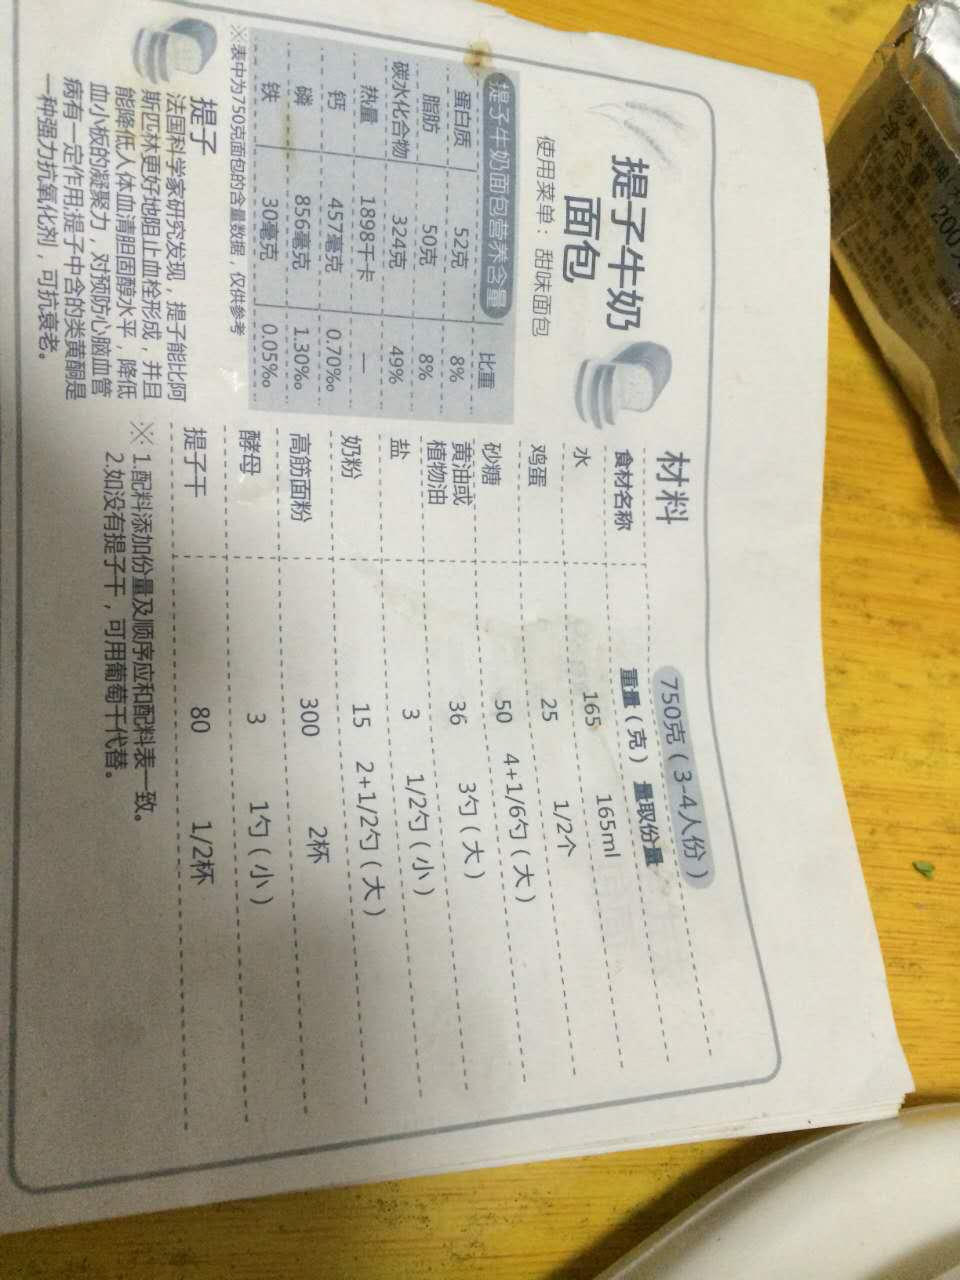 提子牛奶
面包
使用菜单：甜味面包
提子牛奶面包营养含量
比重
蛋白质 52克 8%
脂肪 50克 8%
碳水化合物 324克 49%
热量 1898千卡 —
钙 457毫克 0.70‰
磷 856毫克 1.30‰
铁 30毫克 0.05‰
※表中为750克面包的含量数据，仅供参考
提子
法国科学家研究发现，提子能比阿
斯匹林更好地阻止血栓形成，并且
能降低人体血清胆固醇水平，降低
血小板的凝聚力，对预防心脑血管
病有一定作用,提子中含的类黄酮是
一种强力抗氧化剂，可抗衰老。
材料
750克（3-4人份）
食材名称 重量（克） 量取份量
水 165 165ml
鸡蛋 25 1/2个
砂糖 50 4+1/6勺（大）
黄油或
植物油 36 3勺（大）
盐 3 1/2勺（小）
奶粉 15 2+1/2勺（大）
高筋面粉 300 2杯
酵母 3 1勺（小）
提子干 80 1/2杯
※ 1.配料添加份量及顺序应和配料表一致。
2.如没有提子干，可用葡萄干代替。
净含量 200